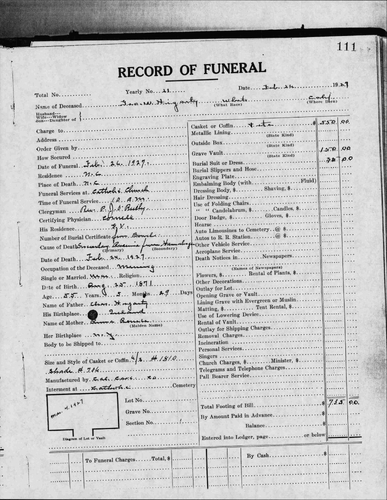 111
RECORD OF FUNERAL
Total No. Yearly No. 21 Date Feb 26 1929
Name of Deceased White
Husband— Wife—Widow Son—Daughter of (What Race) (Where Born)
Charge to
Address
Order Given by
How Secured
Date of Funeral Feb. 26, 1929.
Residence N.C.
Place of Death N.C.
Funeral Services at Catholic Church
Time of Service 10 A.M.
Clergyman Rev. Reilly
Certifying Physician
His Residence
Number of Burial Certificate
Cause of Death Secondary from
(Primary) (Secondary)
Date of Death Feb 24, 1929.
Occupation of the Deceased
Single or Married Religion
Date of Birth Aug. 25" 1871
Age 55 Years 5 Months 29 Days
Name of Father Hagarty
His Birthplace Ireland
Name of Mother Anna
(Maiden Name)
Her Birthplace N.Y.
Body to be Shipped to
Size and Style of Casket or Coffin 6/3 # 1810
Shade # 706
Manufactured by Cal. Cas. Co
Interment at Catholic Cemetery
Lot No.
Grave No.
Section No.
Diagram of Lot or Vault
Casket or Coffin 550 00
Metallic Lining (State Kind)
Outside Box (State Kind)
Grave Vault 150 00
(State Kind)
Burial Suit or Dress 00
Burial Slippers and Hose
Engraving Plate
Embalming Body (with Fluid)
Dressing Body, $ Shaving, $
Hair Dressing
Use of Folding Chairs
" " Candelabrum, $ Candles, $
Door Badge, $ Gloves, $
Hearse
Auto Limousines to Cemetery @ $
Autos to R. R. Station @ $
Other Vehicle Service
Death Notices in Newspapers
Flowers, $ Rental of Plants, $
Other Decorations
Outlay for Lot
Opening Grave or Vault
Lining Grave with Evergreen or Muslin
Matting, $ Tent Rental, $
Use of Lowering Device
Rental of Vault
Outlay for Shipping Charges
Removal Charges
Incineration
Personal Services
Singers
Church Charges, $ Minister, $
Telegrams and Telephone Charges
Pall Bearer Service
Total Footing of Bill 715 00
By Amount Paid in Advance
Balance
Entered into Ledger, page or below $
To Funeral Charges Total $ By Cash $